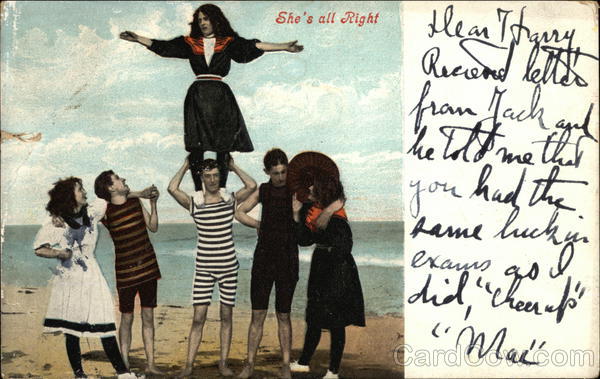 She's all Right
Dear Harry
Recieved letter
from Jack and
he told me that
you had the
same luck in
exams as I
did, "cheer up"
"Mac"
CardCow.com